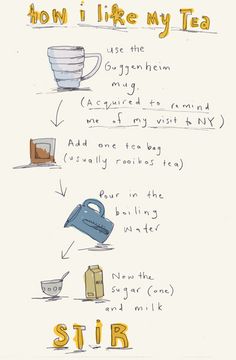 how i like my TEA
use the
Guggenheim
mug.
(Acquired to remind
me of my visit to NY)
Add one tea bag
(usually rooibos tea)
Pour in the
boiling
water
Now the
sugar (one)
and milk
STIR